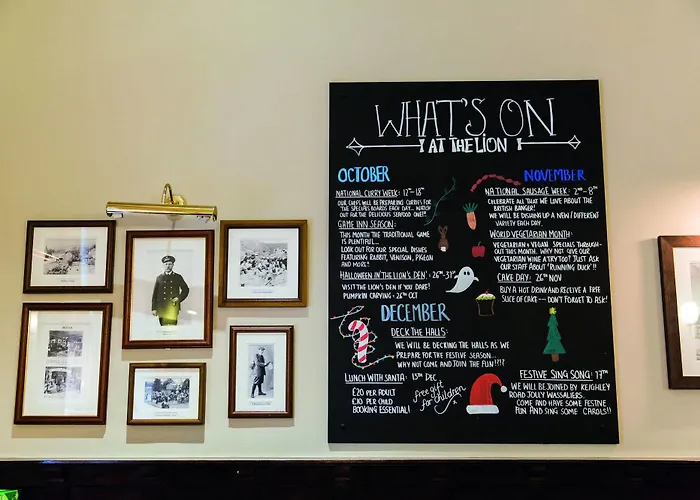 WHAT'S ON
AT THE LION
OCTOBER
NATIONAL CURRY WEEK: 12TH-18TH
OUR CHEFS WILL BE PREPARING CURRIES FOR
THE SPECIALS BOARDS EACH DAY... WATCH
OUT FOR THE DELICIOUS SEAFOOD ONE!
GAME INN SEASON:
THIS MONTH THE NATIONAL GAME
IS PLENTIFUL...
LOOK OUT FOR OUR SPECIAL DISHES
FEATURING RABBIT, VENISON, PIGEON
AND MORE!
HALLOWEEN IN THE LION'S DEN: 26TH-31ST
VISIT THE LION'S DEN IF YOU DARE!
PUMPKIN CARVING: 26TH OCT
NOVEMBER
NATIONAL SAUSAGE WEEK: 2ND-8TH
CELEBRATE ALL THAT WE LOVE ABOUT THE
BRITISH BANGER!
WE WILL BE DISHING UP A NEW/DIFFERENT
VARIETY EACH DAY.
WORLD VEGETARIAN MONTH:
VEGETARIAN + VEGAN SPECIALS THROUGH-
OUT THIS MONTH. WHY NOT GIVE OUR
VEGETARIAN WINE A TRY TOO? JUST ASK
OUR STAFF ABOUT 'RUNNING DUCK'!!
CAKE DAY: 26TH NOV
BUY A HOT DRINK AND RECEIVE A FREE
SLICE OF CAKE --- DON'T FORGET TO ASK!
DECEMBER
DECK THE HALLS:
WE WILL BE DECKING THE HALLS AS WE
PREPARE FOR THE FESTIVE SEASON...
WHY NOT COME AND JOIN THE FUN!!??
LUNCH WITH SANTA: 13TH DEC
£20 PER ADULT
£10 PER CHILD
BOOKING ESSENTIAL!
free gift
for children
FESTIVE SING SONG: 17TH
WE WILL BE JOINED BY KEIGHLEY
ROAD JOLLY WASSALIERS.
COME AND HAVE SOME FESTIVE
FUN AND SING SOME CAROLS!!